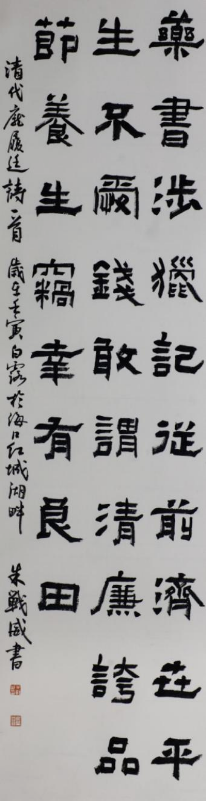 藥書涉獵記從前濟世平
生不受錢敢謂清廉誇品
節養生竊幸有良田
清代龐履廷詩一首 歲在壬寅白露於海口紅城湖畔 朱戰威書